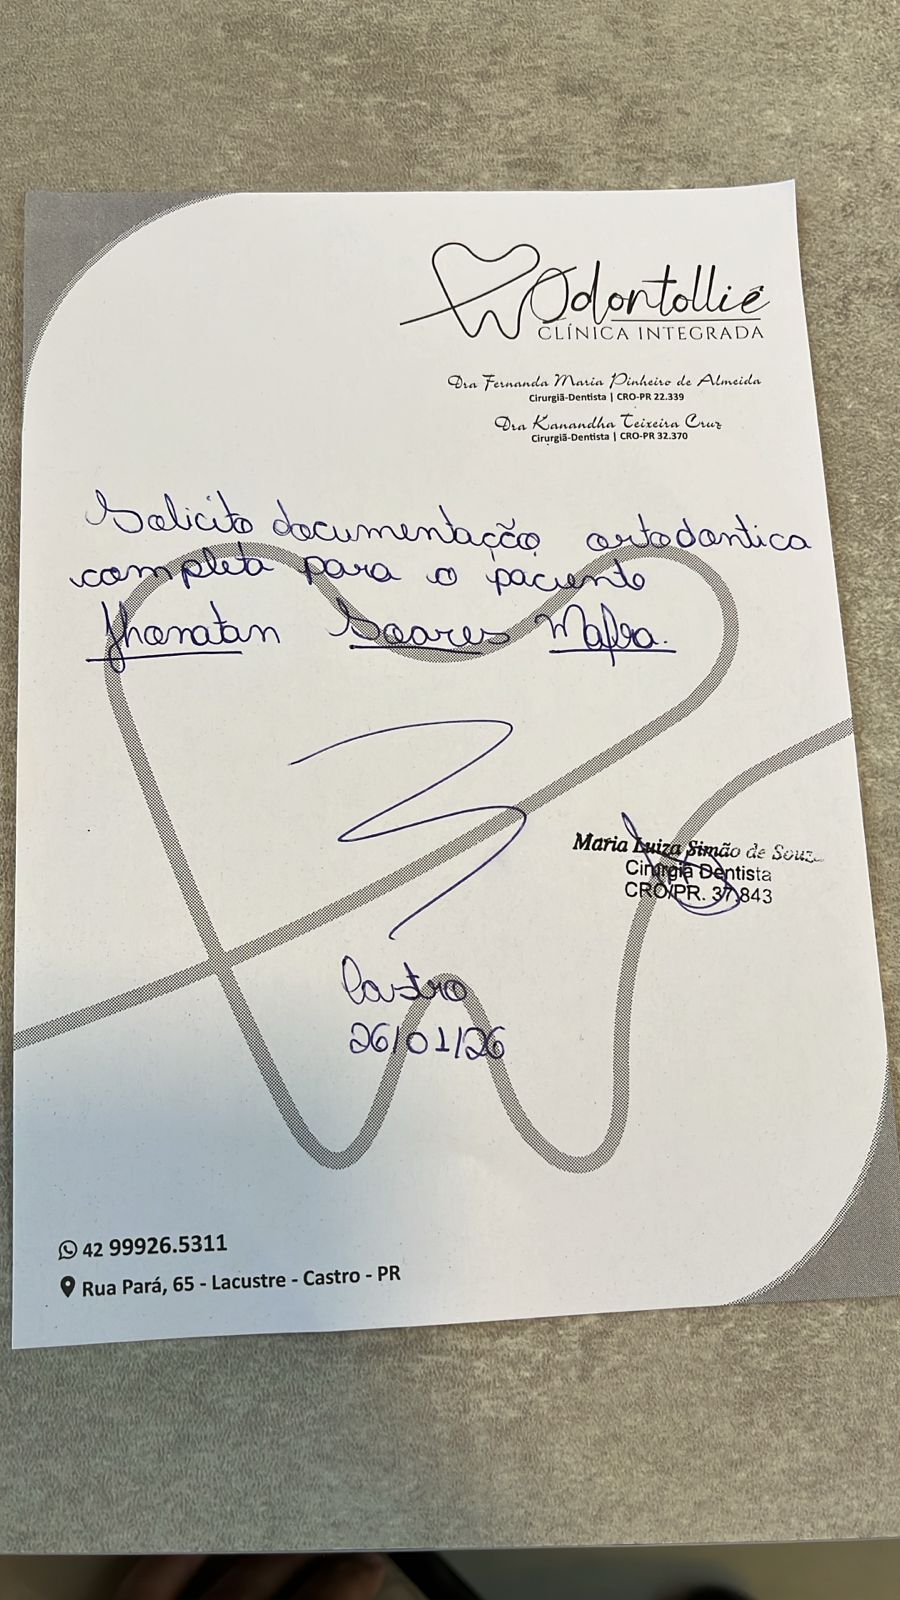 Odontolliê
CLÍNICA INTEGRADA
Dra Fernanda Maria Pinheiro de Almeida
Cirurgiã-Dentista | CRO-PR 22.339
Dra Kanandha Teixeira Cruz
Cirurgiã-Dentista | CRO-PR 32.370
Solicito documentação ortodontica
completa para o paciente
Jhonatan Soares Mafra.
Maria Luiza Simão de Souz
Cirurgiã Dentista
CRO/PR. 37.843
Castro
26/01/26
42 99926.5311
Rua Pará, 65 - Lacustre - Castro - PR